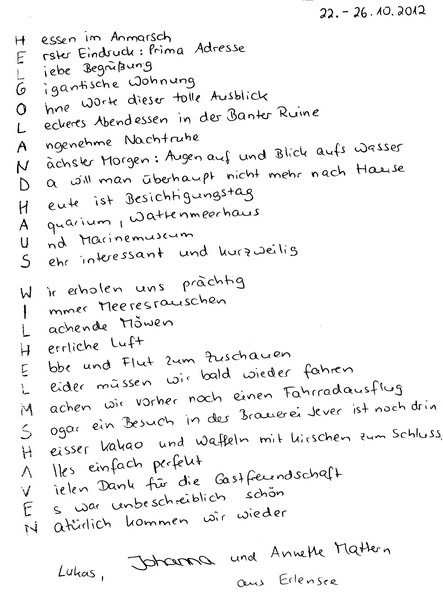 22. - 26.10.2012
H essen im Anmarsch
E rster Eindruck: Prima Adresse
L iebe Begrüßung
G igantische Wohnung
O hne Worte dieser tolle Ausblick
L eckeres Abendessen in der Banter Ruine
A ngenehme Nachtruhe
N ächster Morgen: Augen auf und Blick aufs Wasser
D a will man überhaupt nicht mehr nach Hause
H eute ist Besichtigungstag
A quarium, Wattenmeerhaus
U nd Marinemuseum
S ehr interessant und kurzweilig
W ir erholen uns prächtig
I mmer Meeresrauschen
L achende Möwen
H errliche Luft
E bbe und Flut zum Zuschauen
L eider müssen wir bald wieder fahren
M achen wir vorher noch einen Fahrradausflug
S ogar ein Besuch in der Brauerei Jever ist noch drin
H eisser Kakao und Waffeln mit Kirschen zum Schluss
A lles einfach perfekt
V ielen Dank für die Gastfreundschaft
E s war unbeschreiblich schön
N atürlich kommen wir wieder
Lukas, Johanna und Annette Mattern
aus Erlensee